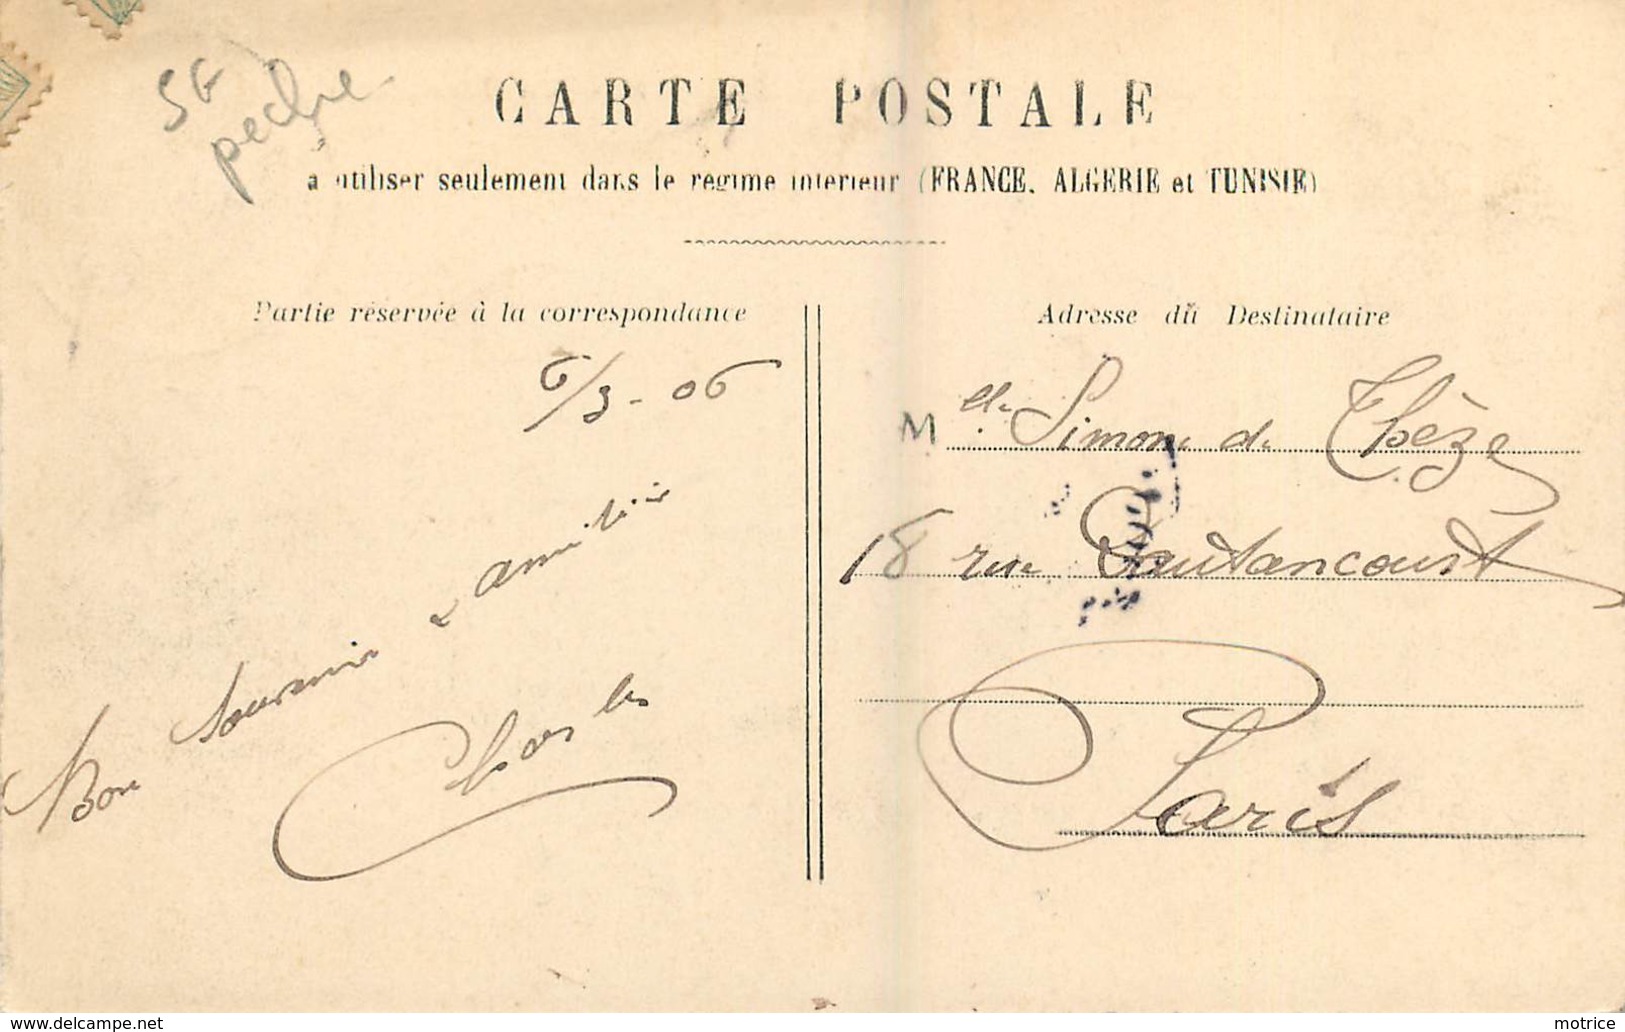 5 G
peche
CARTE POSTALE
a utiliser seulement dans le regime interieur (FRANCE, ALGERIE et TUNISIE)
Partie réservée à la correspondance
Adresse du Destinataire
6/3-06
Bon Souvenir & amitiés
Charles
Mlle Simone de Thèze
18 rue Cautancourt
Paris
www.delcampe.net
motrice